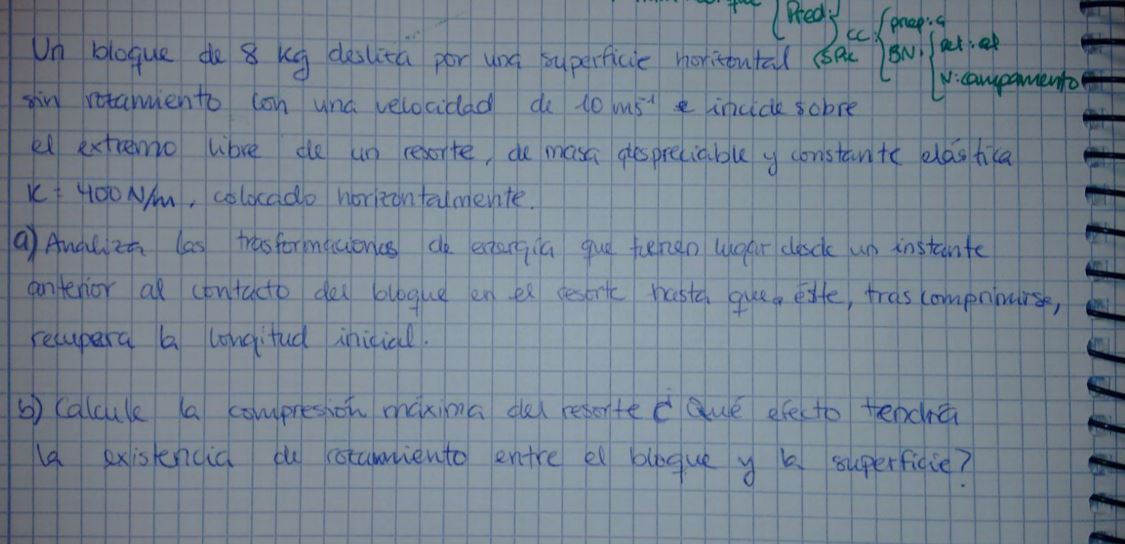 {Pred:}
CC {prep: a
Un bloque de 8 kg desliza por una superficie horizontal (SPrep {SN: {det: el
N: campamento
sin rozamiento con una velocidad de 10 ms⁻¹ e incide sobre
el extremo libre de un resorte, de masa despreciable y constante elástica
K = 400 N/m, colocado horizontalmente.
a) Analiza las trasformaciones de energía que tienen lugar desde un instante
anterior al contacto del bloque en el resorte hasta que éste, tras comprimirse,
recupera la longitud inicial.
b) Calcule la compresión máxima del resorte ¿Qué efecto tendría
la existencia de rozamiento entre el bloque y la superficie?